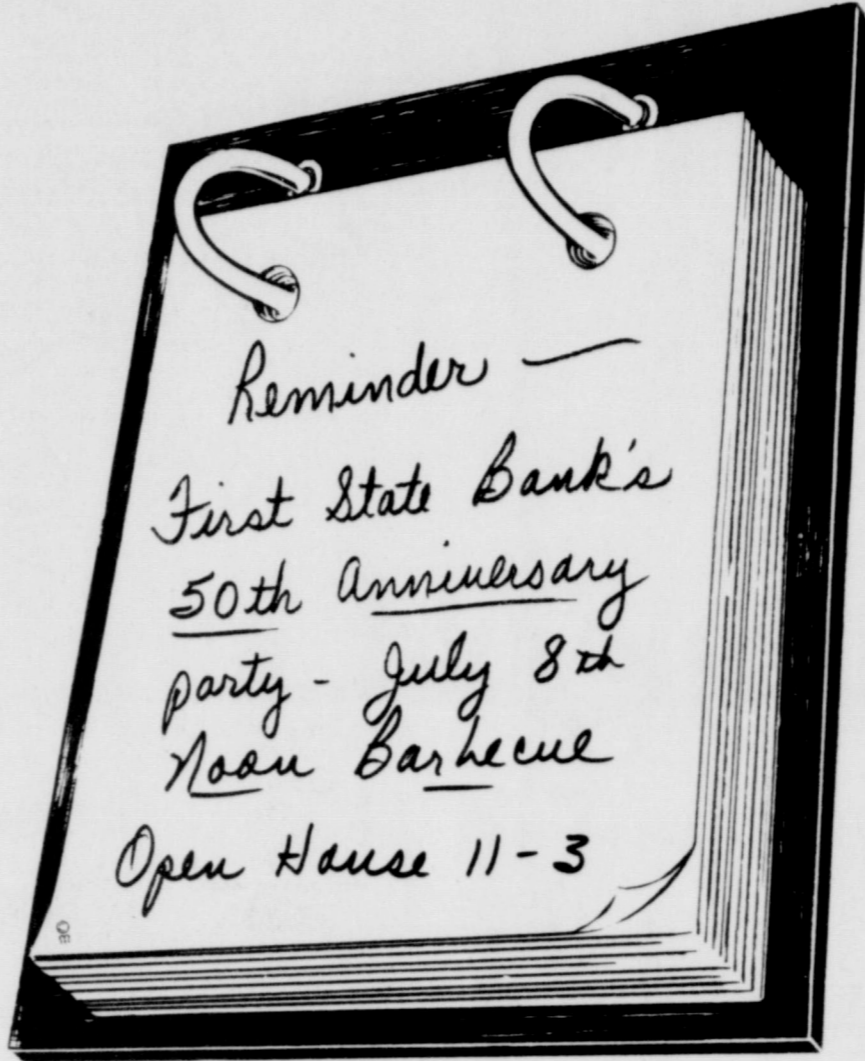 Reminder —
First State Bank's
50th Anniversary
party - July 8th
Noon Barbecue
Open House 11-3